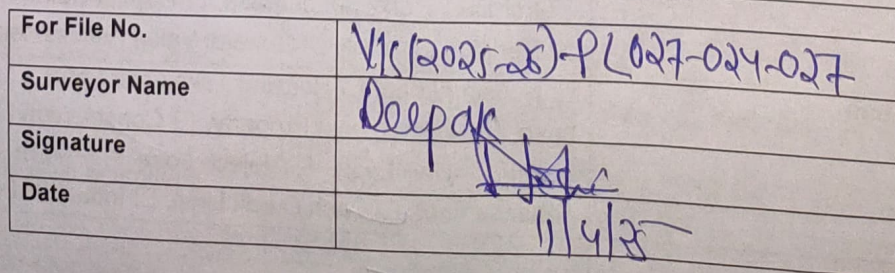 For File No. VIS(2025-26)-PL027-024-027
Surveyor Name Deepak
Signature
Date 11/4/25